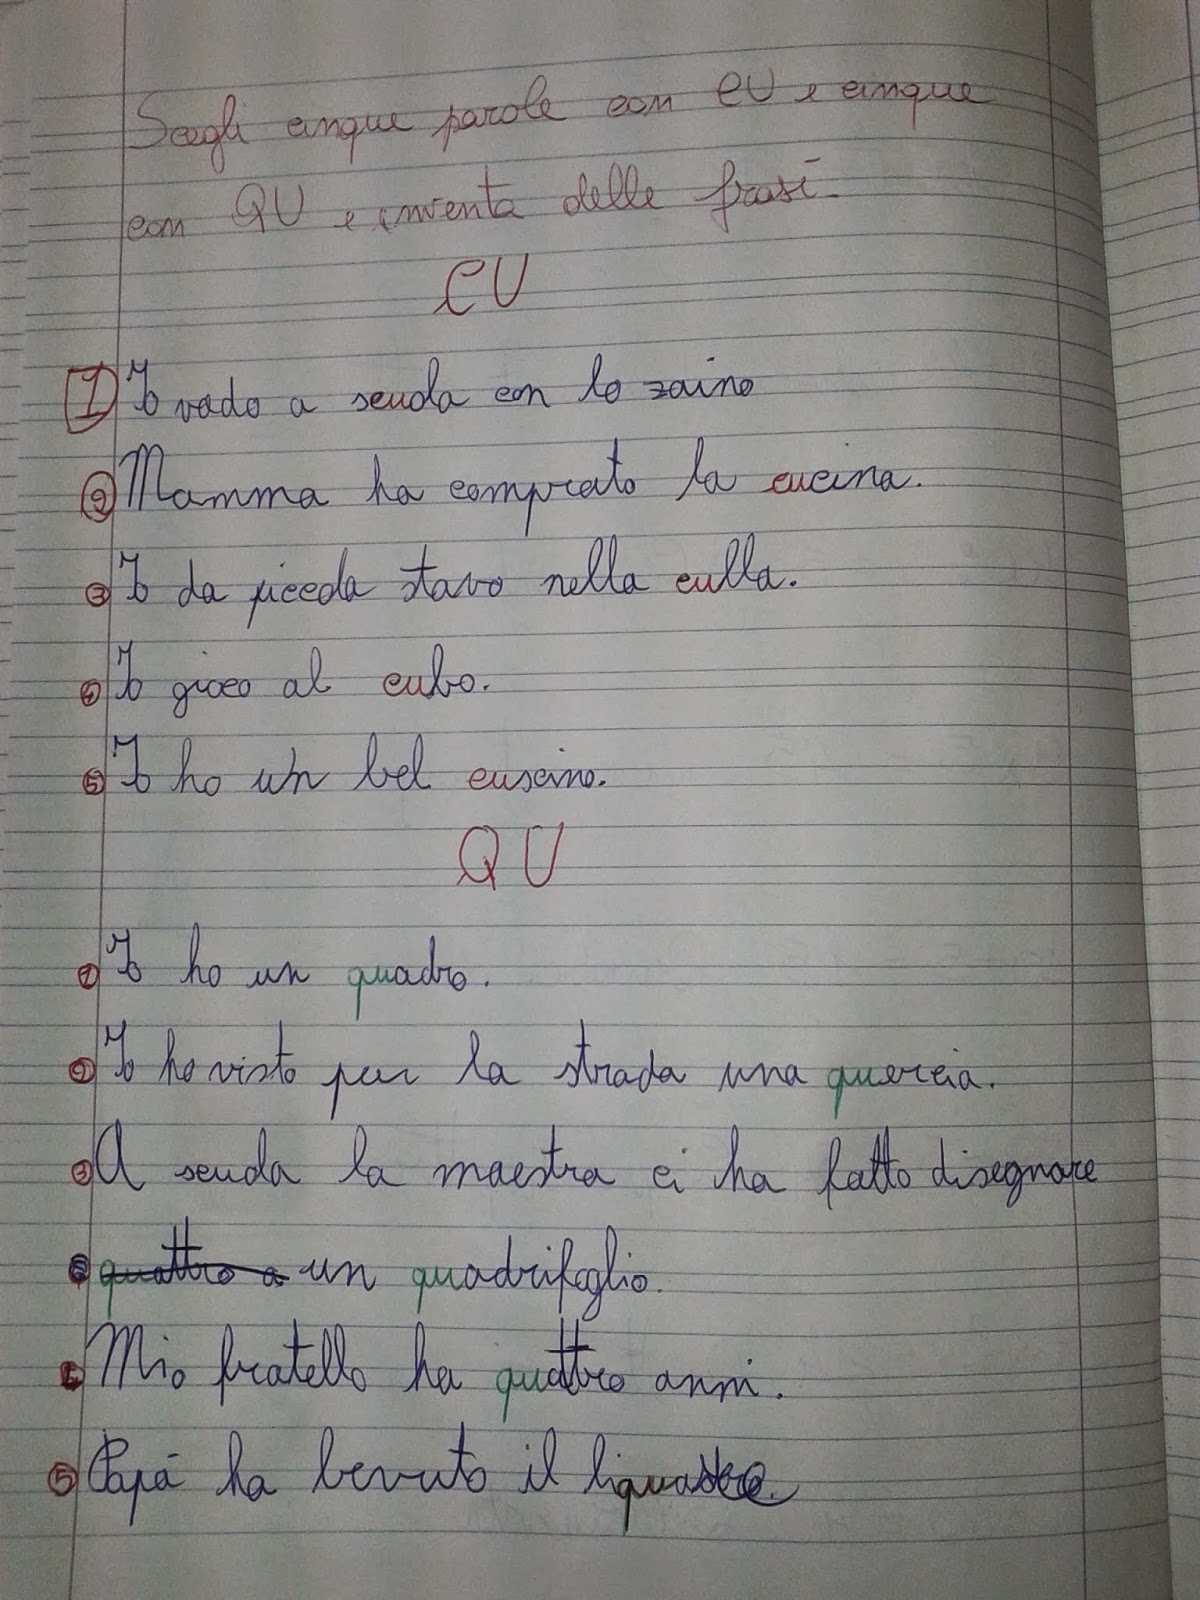 Scegli cinque parole con CU e cinque
con QU e inventa delle frasi.
CU
1 Io vado a scuola con lo zaino
2 Mamma ha comprato la cucina.
3 Io da piccola stavo nella culla.
4 Io gioco al cubo.
5 Io ho un bel cuscino.
QU
1 Io ho un quadro.
2 Io ho visto per la strada una quercia.
3 A scuola la maestra ci ha fatto disegnare
quattro a un quadrifoglio.
4 Mio fratello ha quattro anni.
5 Papá ha bevuto il